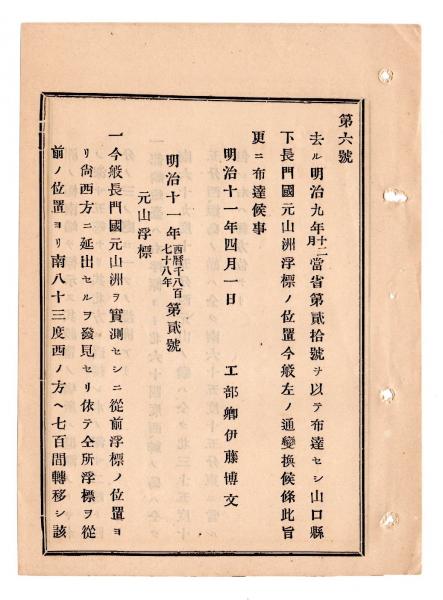 第六號
去ル明治九年十二月當省第貳拾號ヲ以テ布達セシ山口縣
下長門國元山洲浮標ノ位置今般左ノ通變換候條此旨
更ニ布達候事
明治十一年四月一日　工部卿伊藤博文
明治十一年西曆千八百七十八年第貳號
元山浮標
一今般長門國元山洲ヲ實測セシニ從前浮標ノ位置ヨ
リ尙西方ニ延出セルヲ發見セリ依テ仝所浮標ヲ從
前ノ位置ヨリ南八十三度西ノ方ヘ七百間轉移シ該